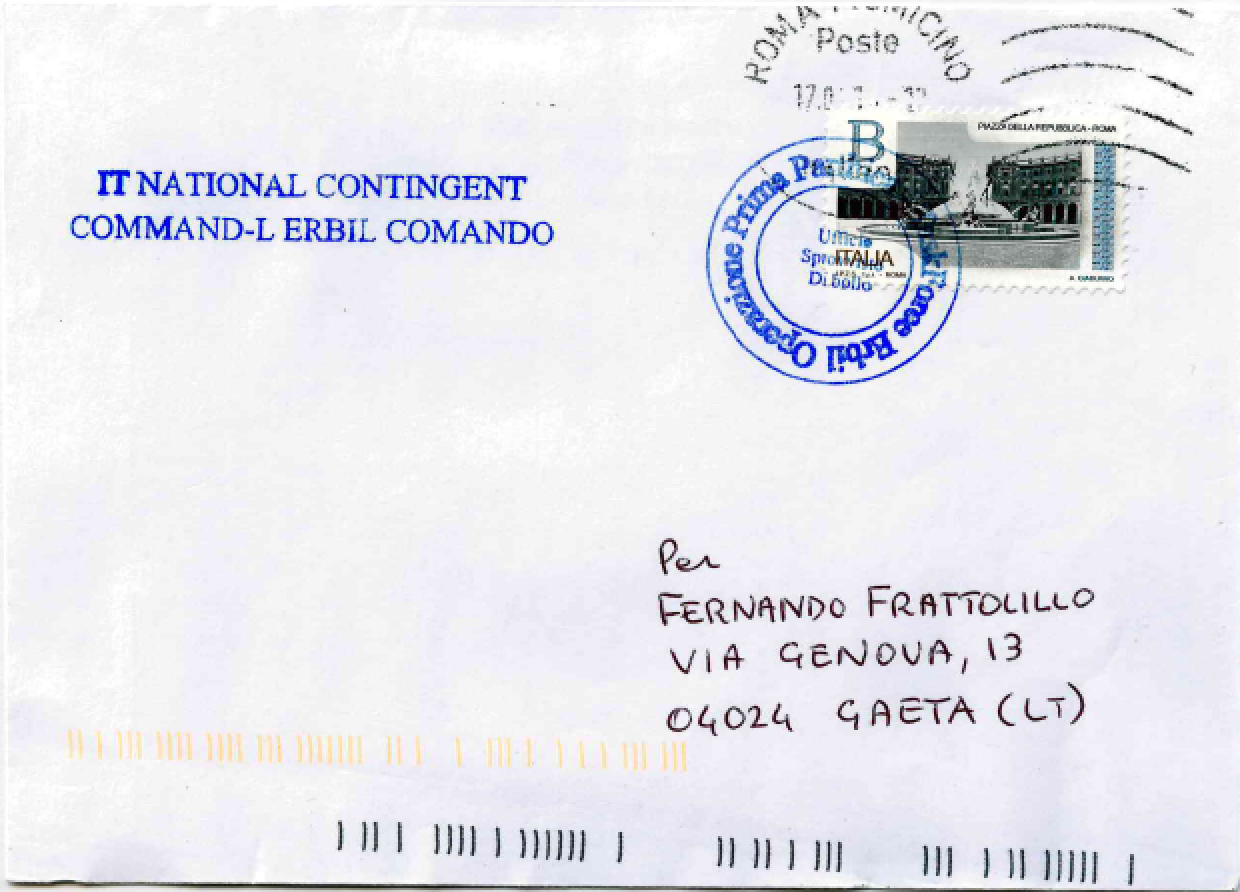 ROMA FIUMICINO
Poste
B
PIAZZA DELLA REPUBBLICA - ROMA
IT NATIONAL CONTINGENT
COMMAND-L ERBIL COMANDO
Operazione Prima Force Erbil
Ufficio
ITALIA
Di bollo
Per
FERNANDO FRATTOLILLO
VIA GENOVA, 13
04024 GAETA (LT)